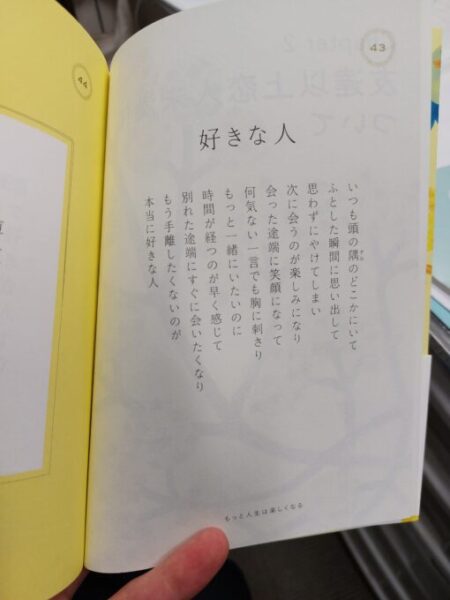 43
好きな人
いつも頭の隅のどこかにいて
ふとした瞬間に思い出して
思わずにやけてしまい
次に会うのが楽しみになり
会った途端に笑顔になって
何気ない一言でも胸に刺さり
もっと一緒にいたいのに
時間が経つのが早く感じて
別れた途端にすぐに会いたくなり
もう手離したくないのが
本当に好きな人
もっと人生は楽しくなる
44